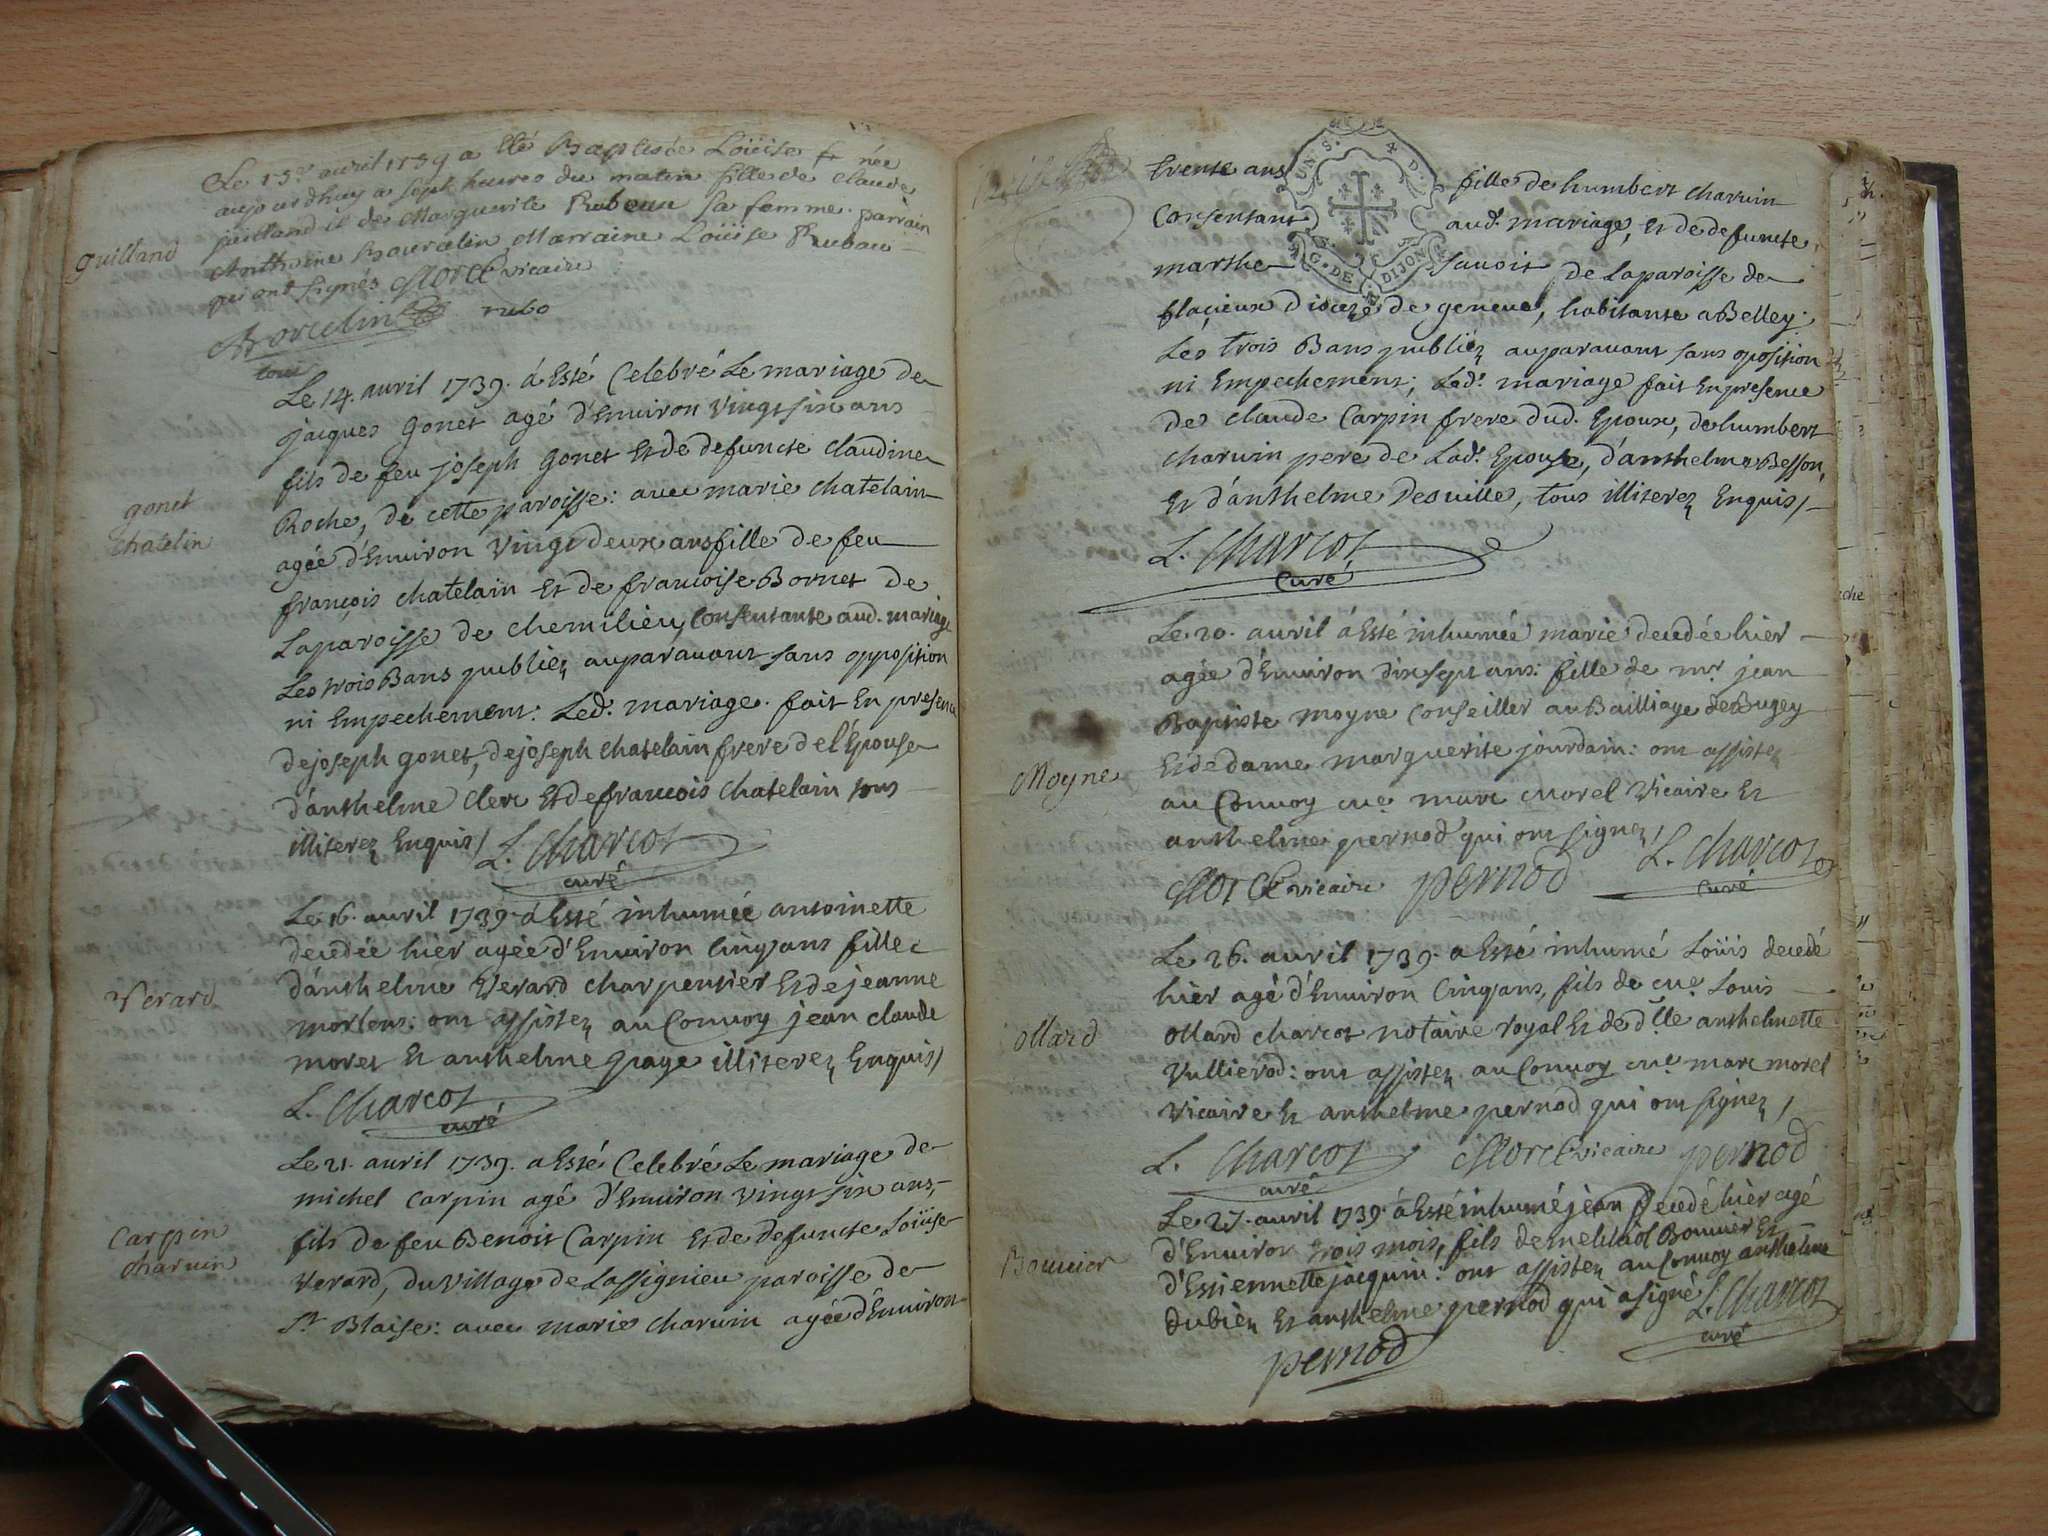 Le 13e avril 1739 a eté Baptisée Loüise & née
aujourdhuy a sept heures du matin fille de Claude
guilland et de Marguerite Rubeau sa femme. parrain
guilland
Anthoine Bourcelin Marraine Loüise Rubeau
qui ont signés Morel vicaire
Borcelin rubo
Le 14. avril 1739. á Esté Celebré Le mariage de
jacques Gonet agé d'Environ Vingt six ans
fils de feu joseph Gonet Et de defuncte Claudine
gonet
Roche, de cette paroisse: avec marie chatelain
chatelin
agée d'Environ Vingt deux ans fille de feu
françois chatelain Et de francoise Bornet de
Laparoisse de chemilieu, Consentante aud. mariage
Les trois Bans publiez auparavant sans opposition
ni Empechement: Led. mariage. fait En presence
de joseph gonet, de joseph chatelain frere de l'Epouse
d'anthelme Clerc Et de francois Chatelain tous
illiterez Enquis / L. Charcot
curé
Le 16. avril 1739. á Esté inhumée antoinette
decedée hier agée d'Environ Cinq ans fille
d'anthelme Verard charpentier Et de jeanne
Verard
mortens: ont assistez au Convoy jean claude
moret Et anthelme page illiterez Enquis /
L. Charcot
curé
Le 21. avril 1739. a Esté Celebré Le mariage de
michel Carpin agé d'Environ Vingt six ans,
Carpin
fils de feu Benoit Carpin Et de defuncte Loüise
charvin
Verard, du village de Lassignieu paroisse de
St Blaise: avec marie charvin agée d'Environ
trente ans fille de humbert charvin
Consentant aud. mariage, Et de defuncte
marthe Savoit de Laparoisse de
flaçieux Dioceze de geneve, habitante a Belley.
Les trois Bans publiéz auparavant sans oposition
ni Empechement; Led. mariage fait En presence
de Claude Carpin frere dud. Epoux, de humbert
Charvin pere de Lad. Epouse, d'anthelme Besson,
Et d'anthelme Desville, tous illiterez Enquis /
L. Charcot
Curé
Le 20. avril á Esté inhumée marie decedée hier
agée d'Environ dix sept ans: fille de mr. jean
Baptiste moyne Conseiller au Bailliage de Bugey
Moyne
Et de dame marguerite jourdain: ont assistez
au Convoy me marc morel Vicaire Et
anthelme pernod qui ont signez /
Morel vicaire pernod L. Charcot
curé
Le 26. avril 1739. a Esté inhumé Loüis decedé
hier agé d'Environ Cinq ans, fils de me Louis
ollard
ollard charcot notaire royal Et de dlle anthelmette
Vullierod: ont assistez au Convoy me marc morel
Vicaire Et anthelme pernod qui ont signez /
L. Charcot Morel vicaire pernod
curé
Le 27. avril 1739. á Esté inhumé jean decedé hier agé
d'Environ trois mois, fils de Bouvier Et
Bouvier
d'Estiennette jacquin: ont assistez au Convoy anthelme
dubiez Et anthelme pernod qui a signé L. Charcot
pernod curé
G. DE DIJON